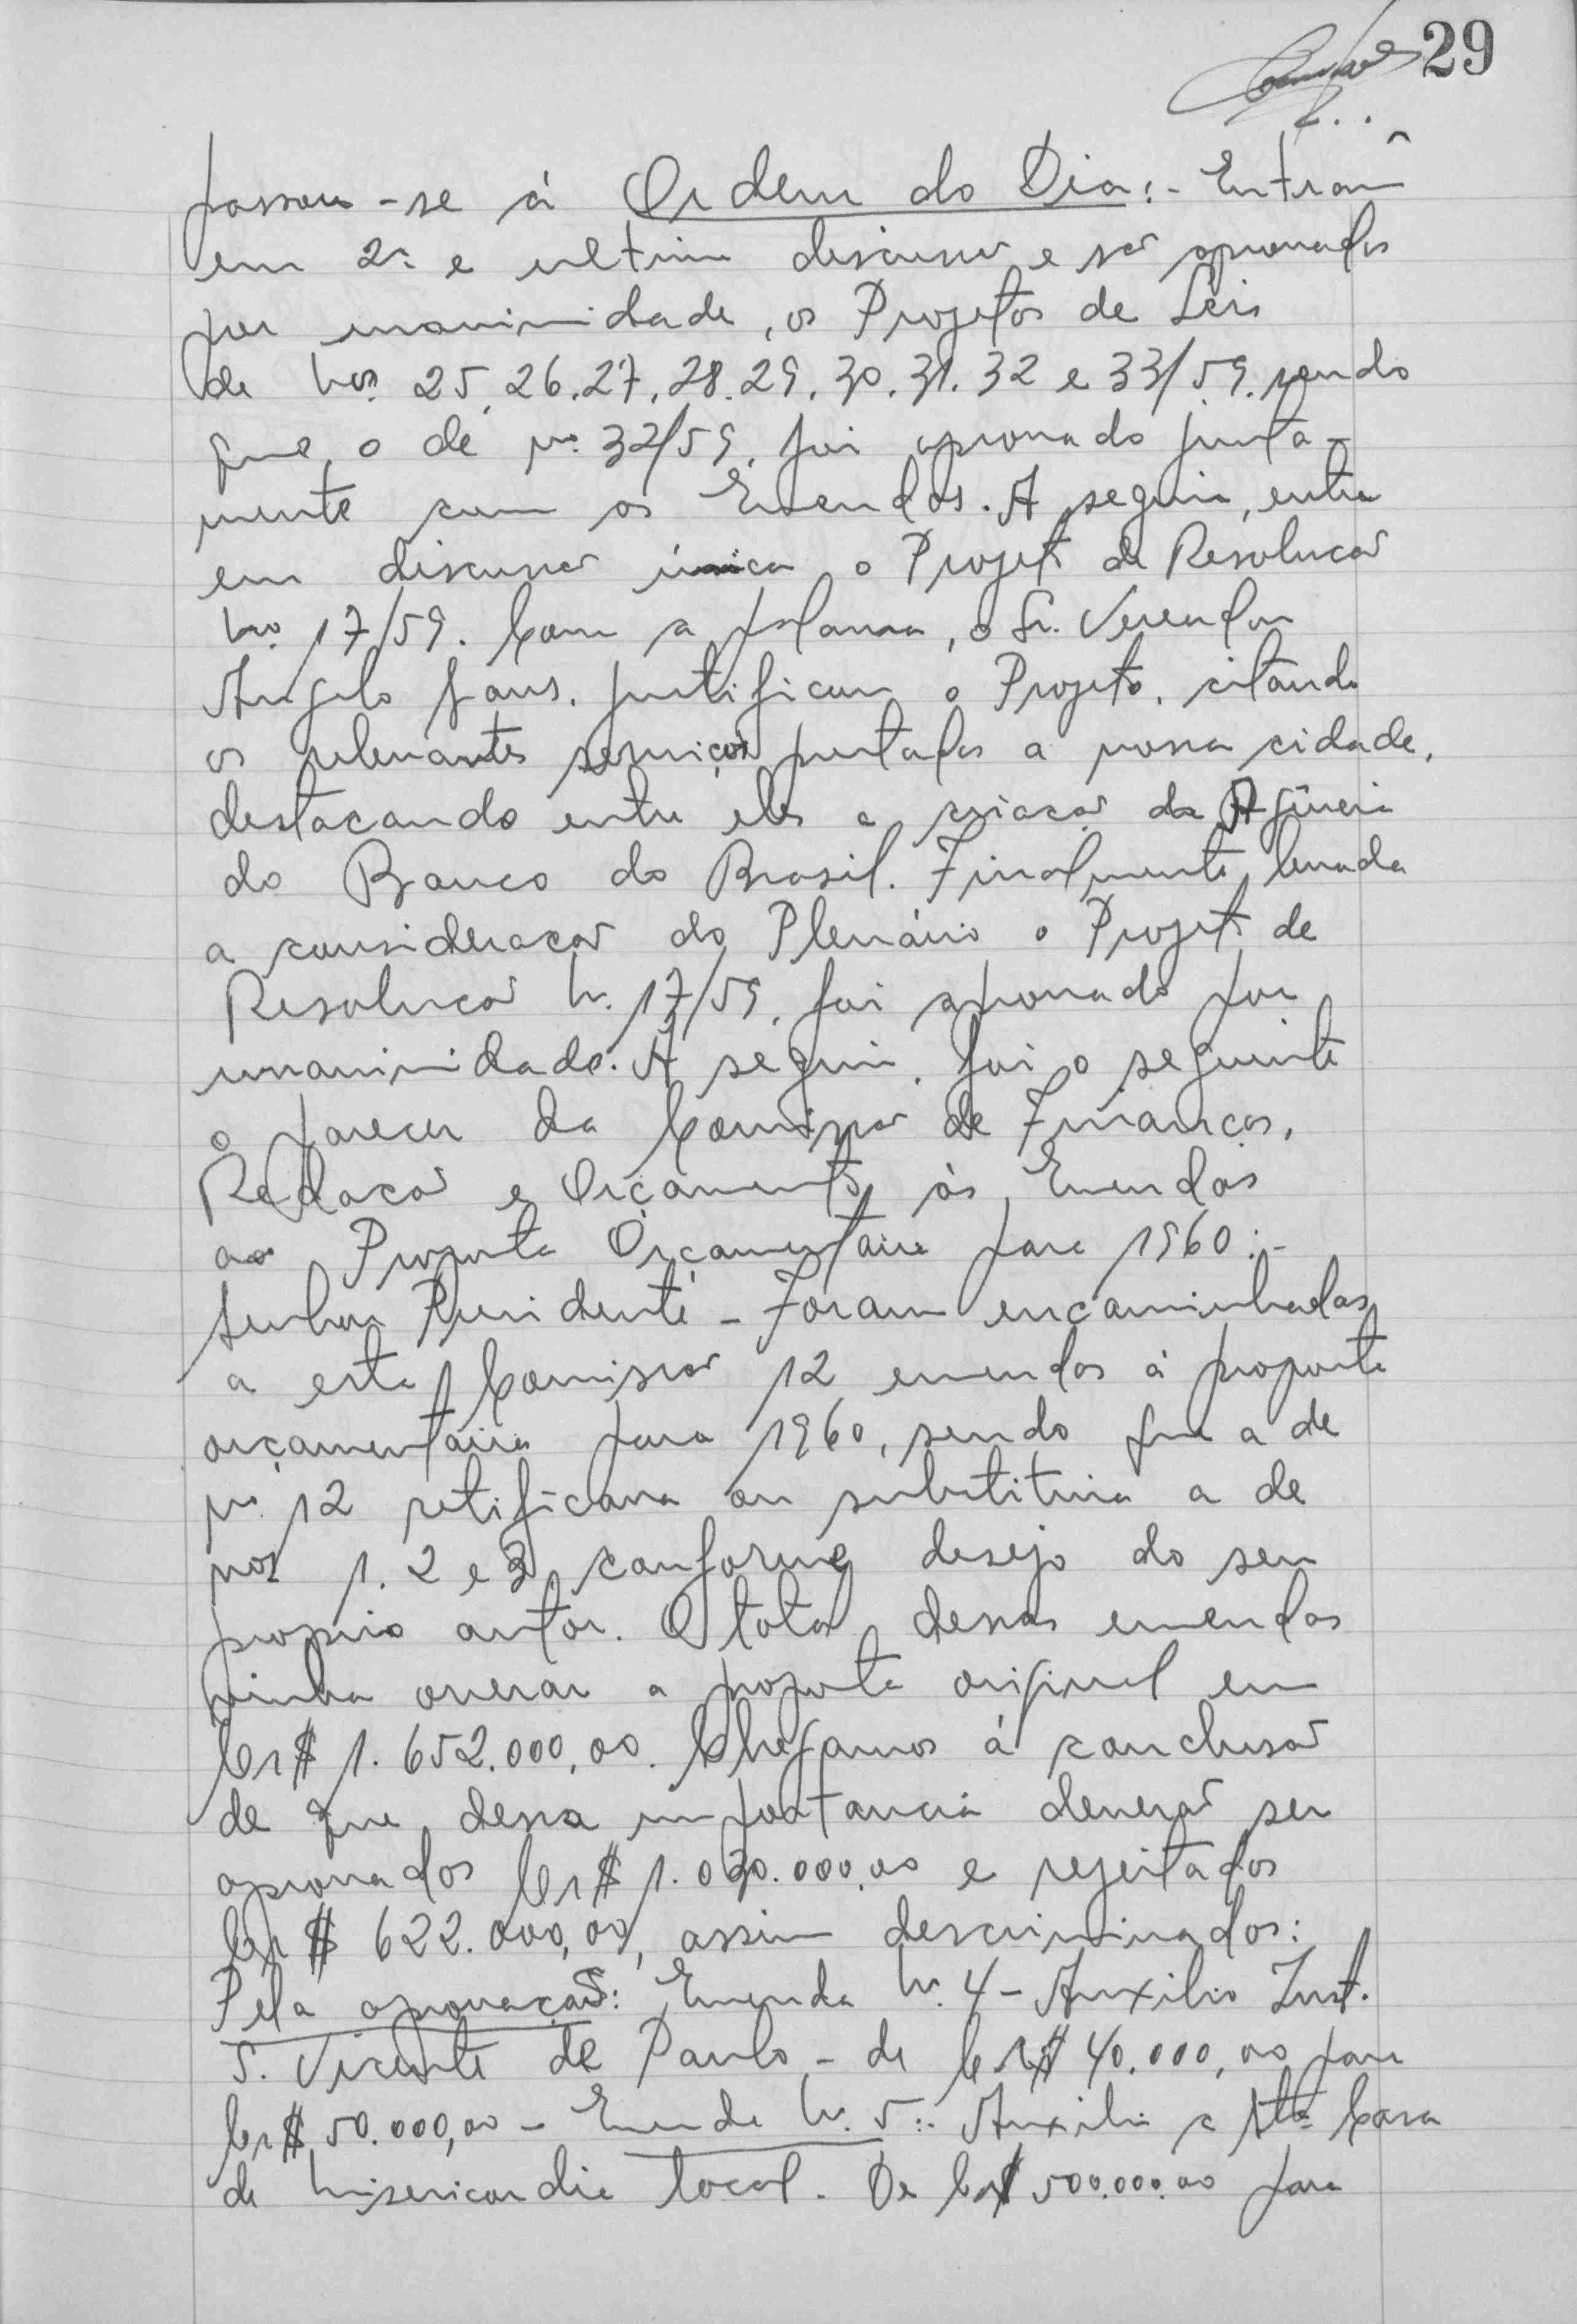 29
passou-se á Ordem do Dia:- Entram
em 2ª e ultima discussão e são aprovados
por unanimidade, os Projetos de Leis
de Nos. 25, 26, 27, 28, 29, 30, 31, 32 e 33/59, sendo
que o de nº 32/59, foi aprovado junta-
mente com as Emendas. A seguir, entra
em discussão única o Projeto de Resolução
No. 17/59. Com a palavra, o Sr. Vereador
Angelo justificou o Projeto, citando
os relevantes serviços prestados a nossa cidade,
destacando entre eles a criação da Agência
do Banco do Brasil. Finalmente, levada
a consideração do Plenário o Projeto de
Resolução N. 17/59, foi aprovado por
unanimidade. A seguir, foi o seguinte
o parecer da Comissão de Finanças,
Redação e Orçamento, ás Emendas
ao Proposta Orçamentaria para 1960:-
Senhor Presidente - Foram encaminhadas
a esta Comissão 12 emendas á proposta
orçamentaria para 1960, sendo que a de
nº 12 retificava ou substituia a de
nos 1, 2 e 3 conforme desejo do seu
proprio autor. O total dessas emendas
vinha onerar a proposta original em
Cr$ 1.652.000,00. Chegamos á conclusão
de que dessa importancia deverão ser
aprovados Cr$ 1.030.000,00 e rejeitados
Cr$ 622.000,00, assim descriminados:
Pela aprovação: Emenda N. 4 - Auxilio Inst.
S. Vicente de Paulo - de Cr$ 40.000,00 para
Cr$ 50.000,00 - Emenda N. 5:- Auxilio a Sta Casa
de Misericordia local. De Cr$ 500.000,00 para